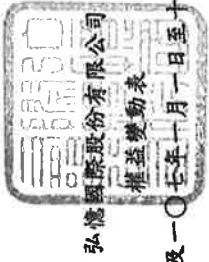 弘憶國際股份有限公司
權益變動表
及一〇七年一月一日至十